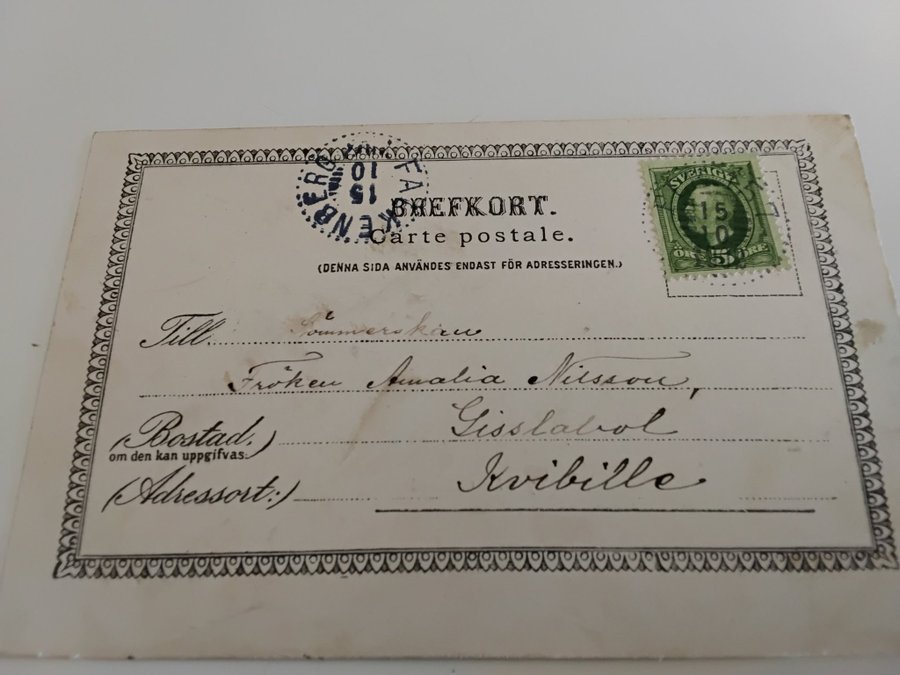 FALKENBERG
15
10
SVERIGE
15
10
5
ÖRE
BREFKORT.
Carte postale.
(DENNA SIDA ANVÄNDES ENDAST FÖR ADRESSERINGEN.)
Till Sömmerskan
Fröken Amalia Nilsson,
(Bostad.) Gisslabol
om den kan uppgifvas.
(Adressort:) Kvibille